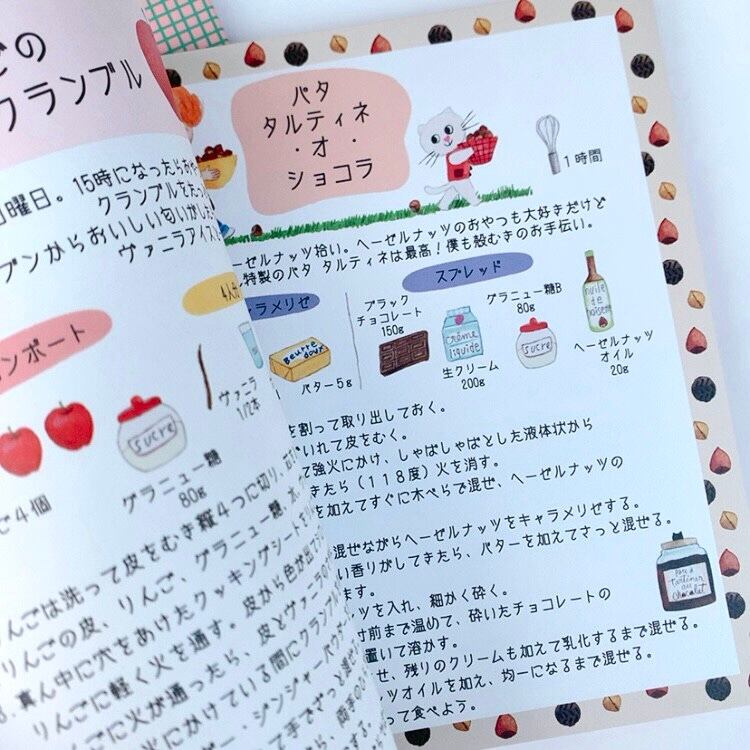 ごの
クランブル
日曜日。15時になったらおや
クランブルをたっ
ブンからおいしい匂いがしたら
ヴァニラアイスを
4人分
コンポート
ヴァニラ
1/2本
sucre
グラニュー糖
80g
ご4個
りんごは洗って皮をむき縦4つに切り、
りんごの皮、りんご、グラニュー糖、
真ん中に穴をあけたクッキングシートを
りんごに軽く火を通す。皮から色が出て
んごに火が通ったら、皮とヴァニラの
火にかけている間にクランブル
ジンジャーパウダー
て手でさっと
パタ
タルティネ
・オ・
ショコラ
1時間
ーゼルナッツ拾い。ヘーゼルナッツのおやつも大好きだけど
特製のパタ タルティネは最高!僕も殻むきのお手伝い。
ラメリゼ
beurre
doux
バター5g
スプレッド
ブラック
チョコレート
150g
crème
liquide
生クリーム
200g
グラニュー糖B
80g
sucre
huile
de
noisette
ヘーゼルナッツ
オイル
20g
を割って取り出しておく。
いれて皮をむく。
て強火にかけ、しゃばしゃばとした液体状から
きたら(118度)火を消す。
を加えてすぐに木べらで混ぜ、ヘーゼルナッツの
混ぜながらヘーゼルナッツをキャラメリゼする。
い香りがしてきたら、バターを加えてさっと混ぜる。
ます。
ッツを入れ、細かく砕く。
寸前まで温めて、砕いたチョコレートの
置いて溶かす。
せ、残りのクリームも加えて乳化するまで混ぜる。
ツオイルを加え、均一になるまで混ぜる。
って食べよう。
pâte à
tartiner
au
chocolat